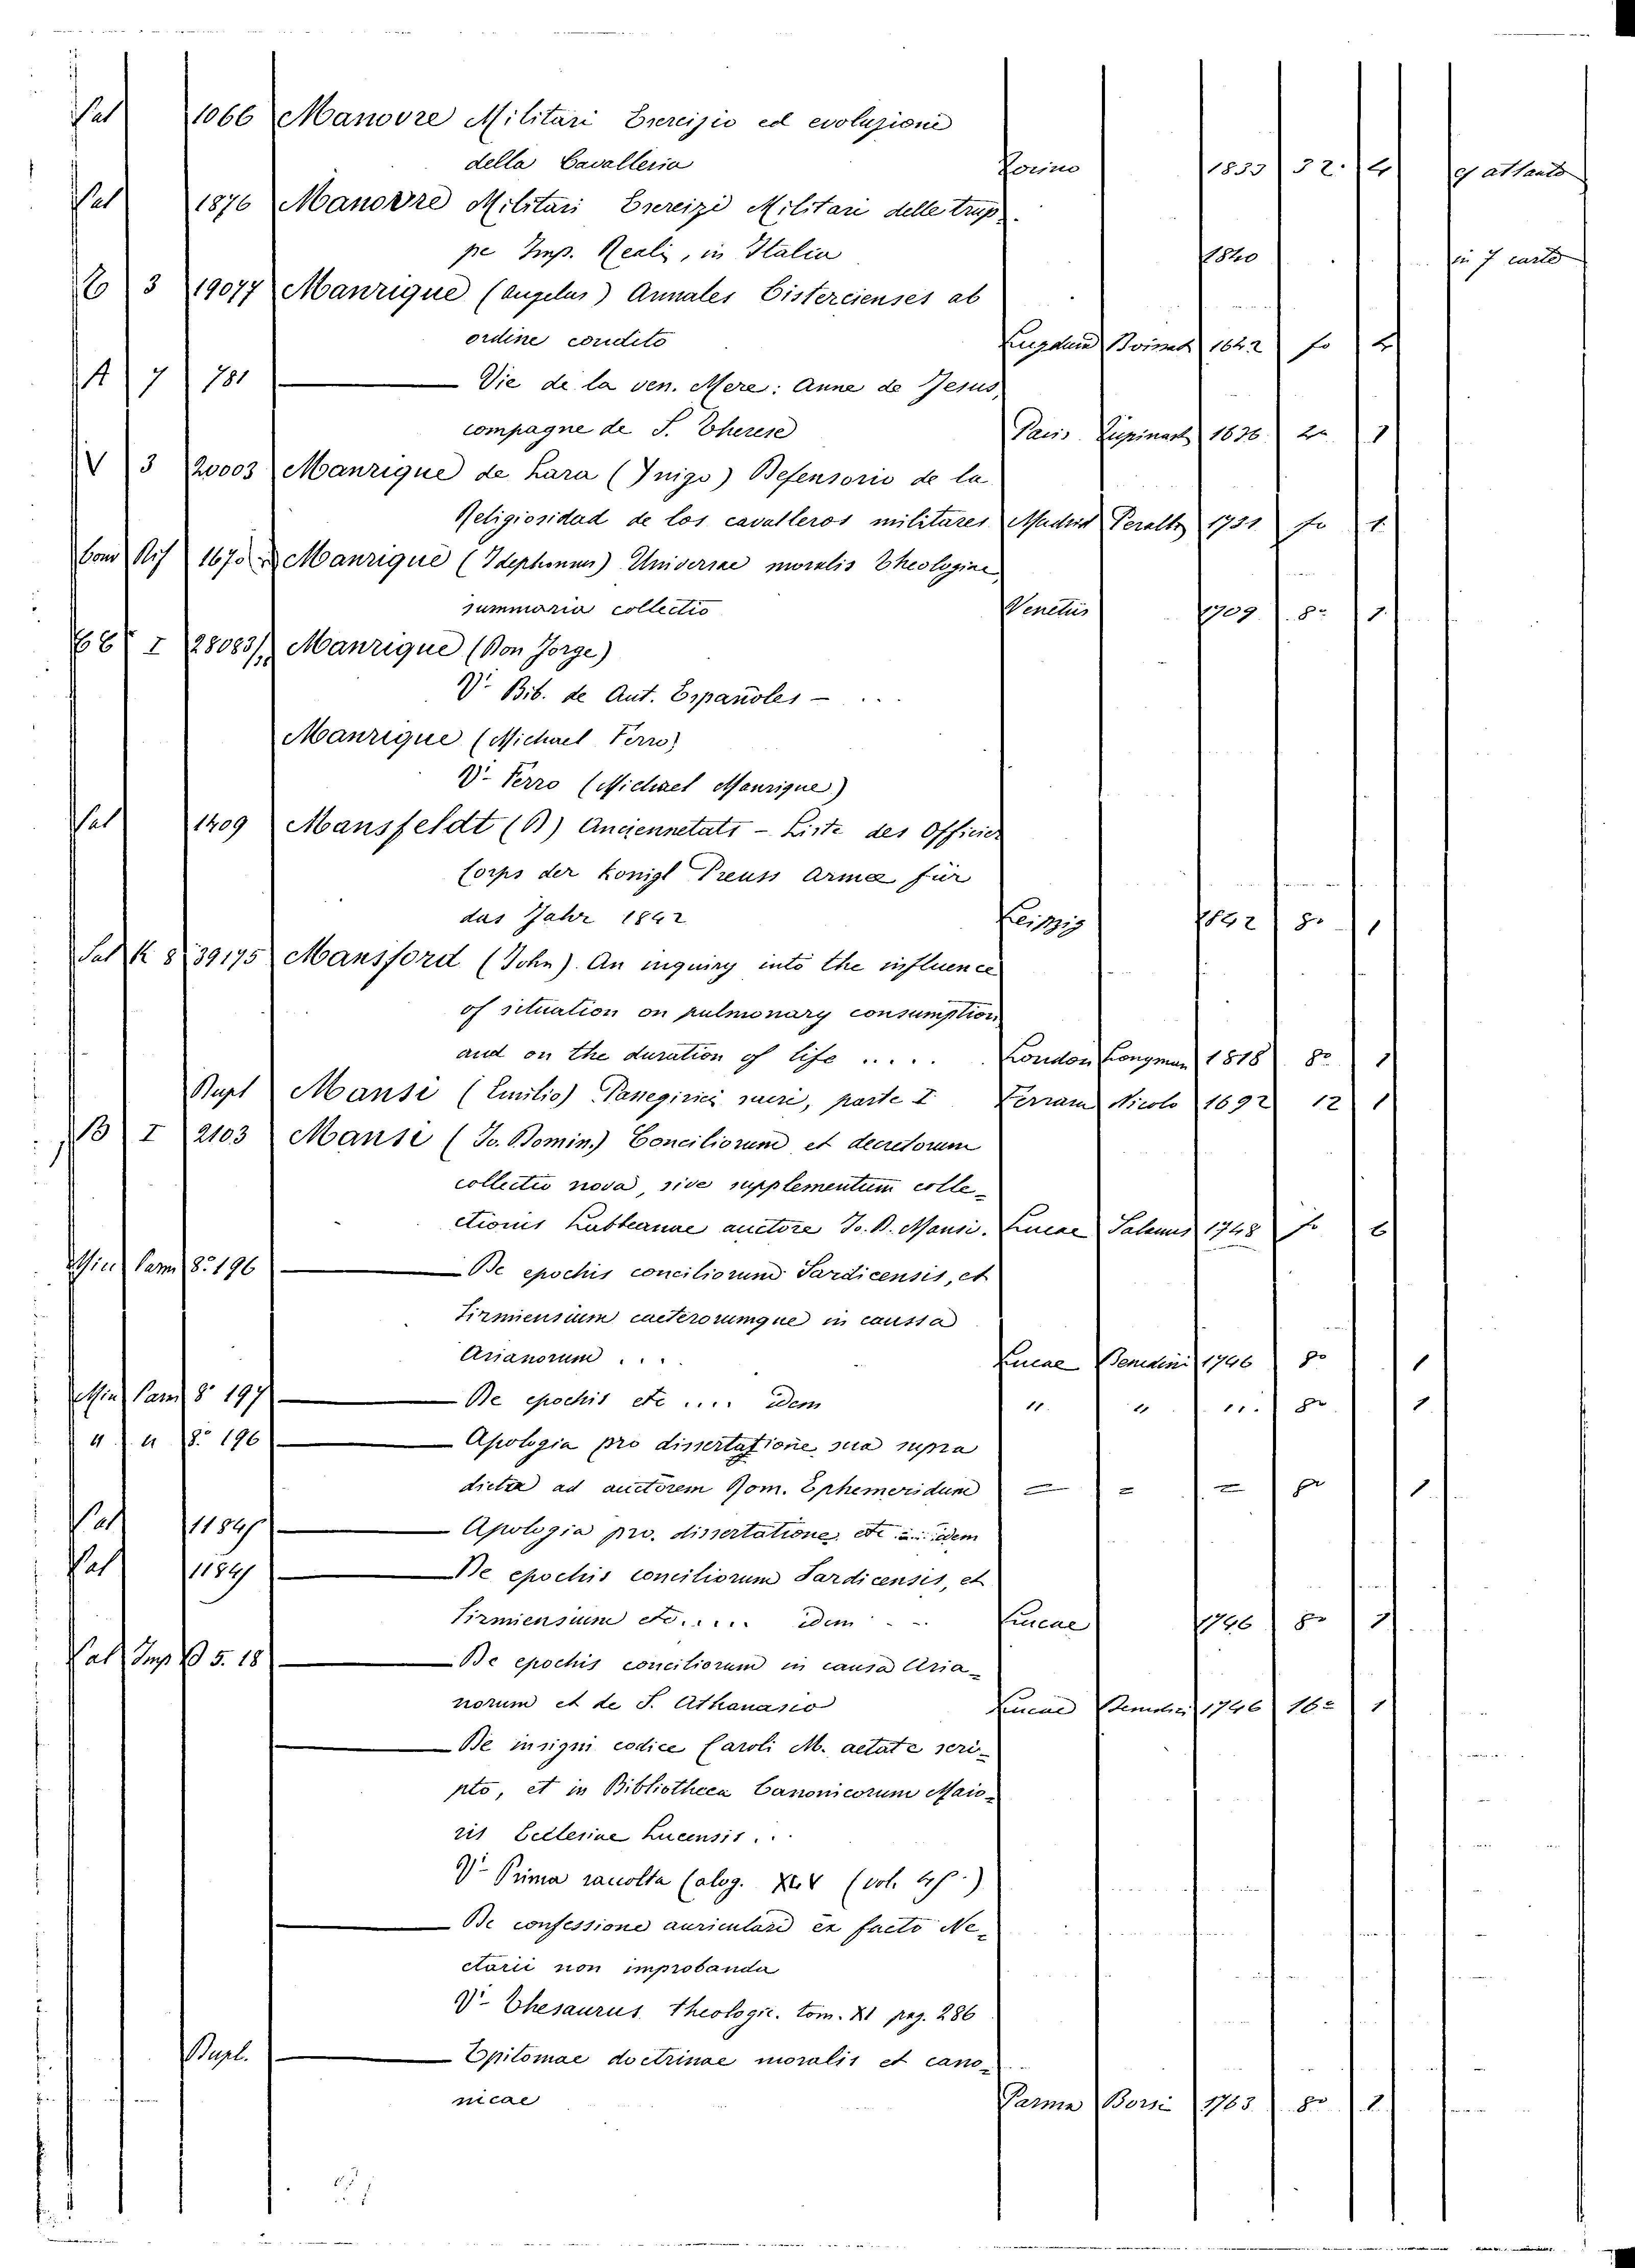 Pal 1066 Manovre Militari Esercizio ed evoluzioni
della Cavalleria Torino 1833 32. 4
Pal 1876 Manovre Militari Esercizi Militari delle trup-
pe Imp. Reali, in Italia 1840 in 7 carte
3 19077 Manrique (Angelus) Annales Cistercienses ab
ordine condito Lugduni Boissat 1642 fo 4
A 7 781 — Vie de la ven. Mere: Anne de Jesus,
compagne de S. Therese Paris 1636 1
V 3 20003 Manrique de Lara (Inigo) Defensorio de la
Religiosidad de los cavalleros militares Madrid Peralta 1731 fo 1.
1670 Manrique (Idephonsus) Universae moralis Theologiae
summaria collectio Venetiis 1709 8º 1.
I 28083/ Manrique (Don Jorge)
V. Bib. de Aut. Españoles - ...
Manrique (Michael Ferro)
V. Ferro (Michael Manrique)
Pal 1409 Mansfeldt (B) Anciennetats - Liste des Officier
Corps der Konigl Preuss Armee für
das Jahr 1842 Leipzig 1842 8º 1
Sal K 8 39175 Mansford (John). An inquiry into the influence
of situation on pulmonary consumption
and on the duration of life ..... London Longman 1818 8º 1
Dupl Mansi (Emilio) Panegirici sacri, parte I Ferrara Nicolo 1692 12 1
B I 2103 Mansi (Jo. Domin.) Conciliorum et decretorum
collectio nova, sive supplementum colle-
ctionis Labbeanae auctore Jo. D. Mansi. Lucae Salanus 1748 fo 6
Min Parm 8º 196 — De epochis conciliorum Sardicensis, et
Sirmiensium caeterorumque in caussa
Arianorum ... Lucae Benedini 1746 8º 1
Min Parm 8º 197 — De epochis etc .... idem " " " 8º 1
" " 8º 196 — Apologia pro dissertatione sua supra
dicta ad auctorem Rom. Ephemeridum = = = 8º 1
Pal 11847 — Apologia pro. dissertatione, etc ... idem
Pal 11847 — De epochis conciliorum Sardicensis, et
Sirmiensium etc...... idem .. Lucae 1746 8º 1
Pal Imp B 5. 18 — De epochis conciliorum in causa Aria-
norum et de S. Athanasio Lucae Benedini 1746 16º 1
— De insigni codice Caroli M. aetate scri-
pto, et in Bibliotheca Canonicorum Maio-
ris Ecclesiae Lucensis...
V. Prima raccolta Calog. XLV
— De confessione auriculari ex facto Ne-
ctarii non improbanda
V. Thesaurus theologic. tom. XI pag. 286
Dupl. — Epitomae doctrinae moralis et cano-
nicae Parma Borsi 1763 8º 1.